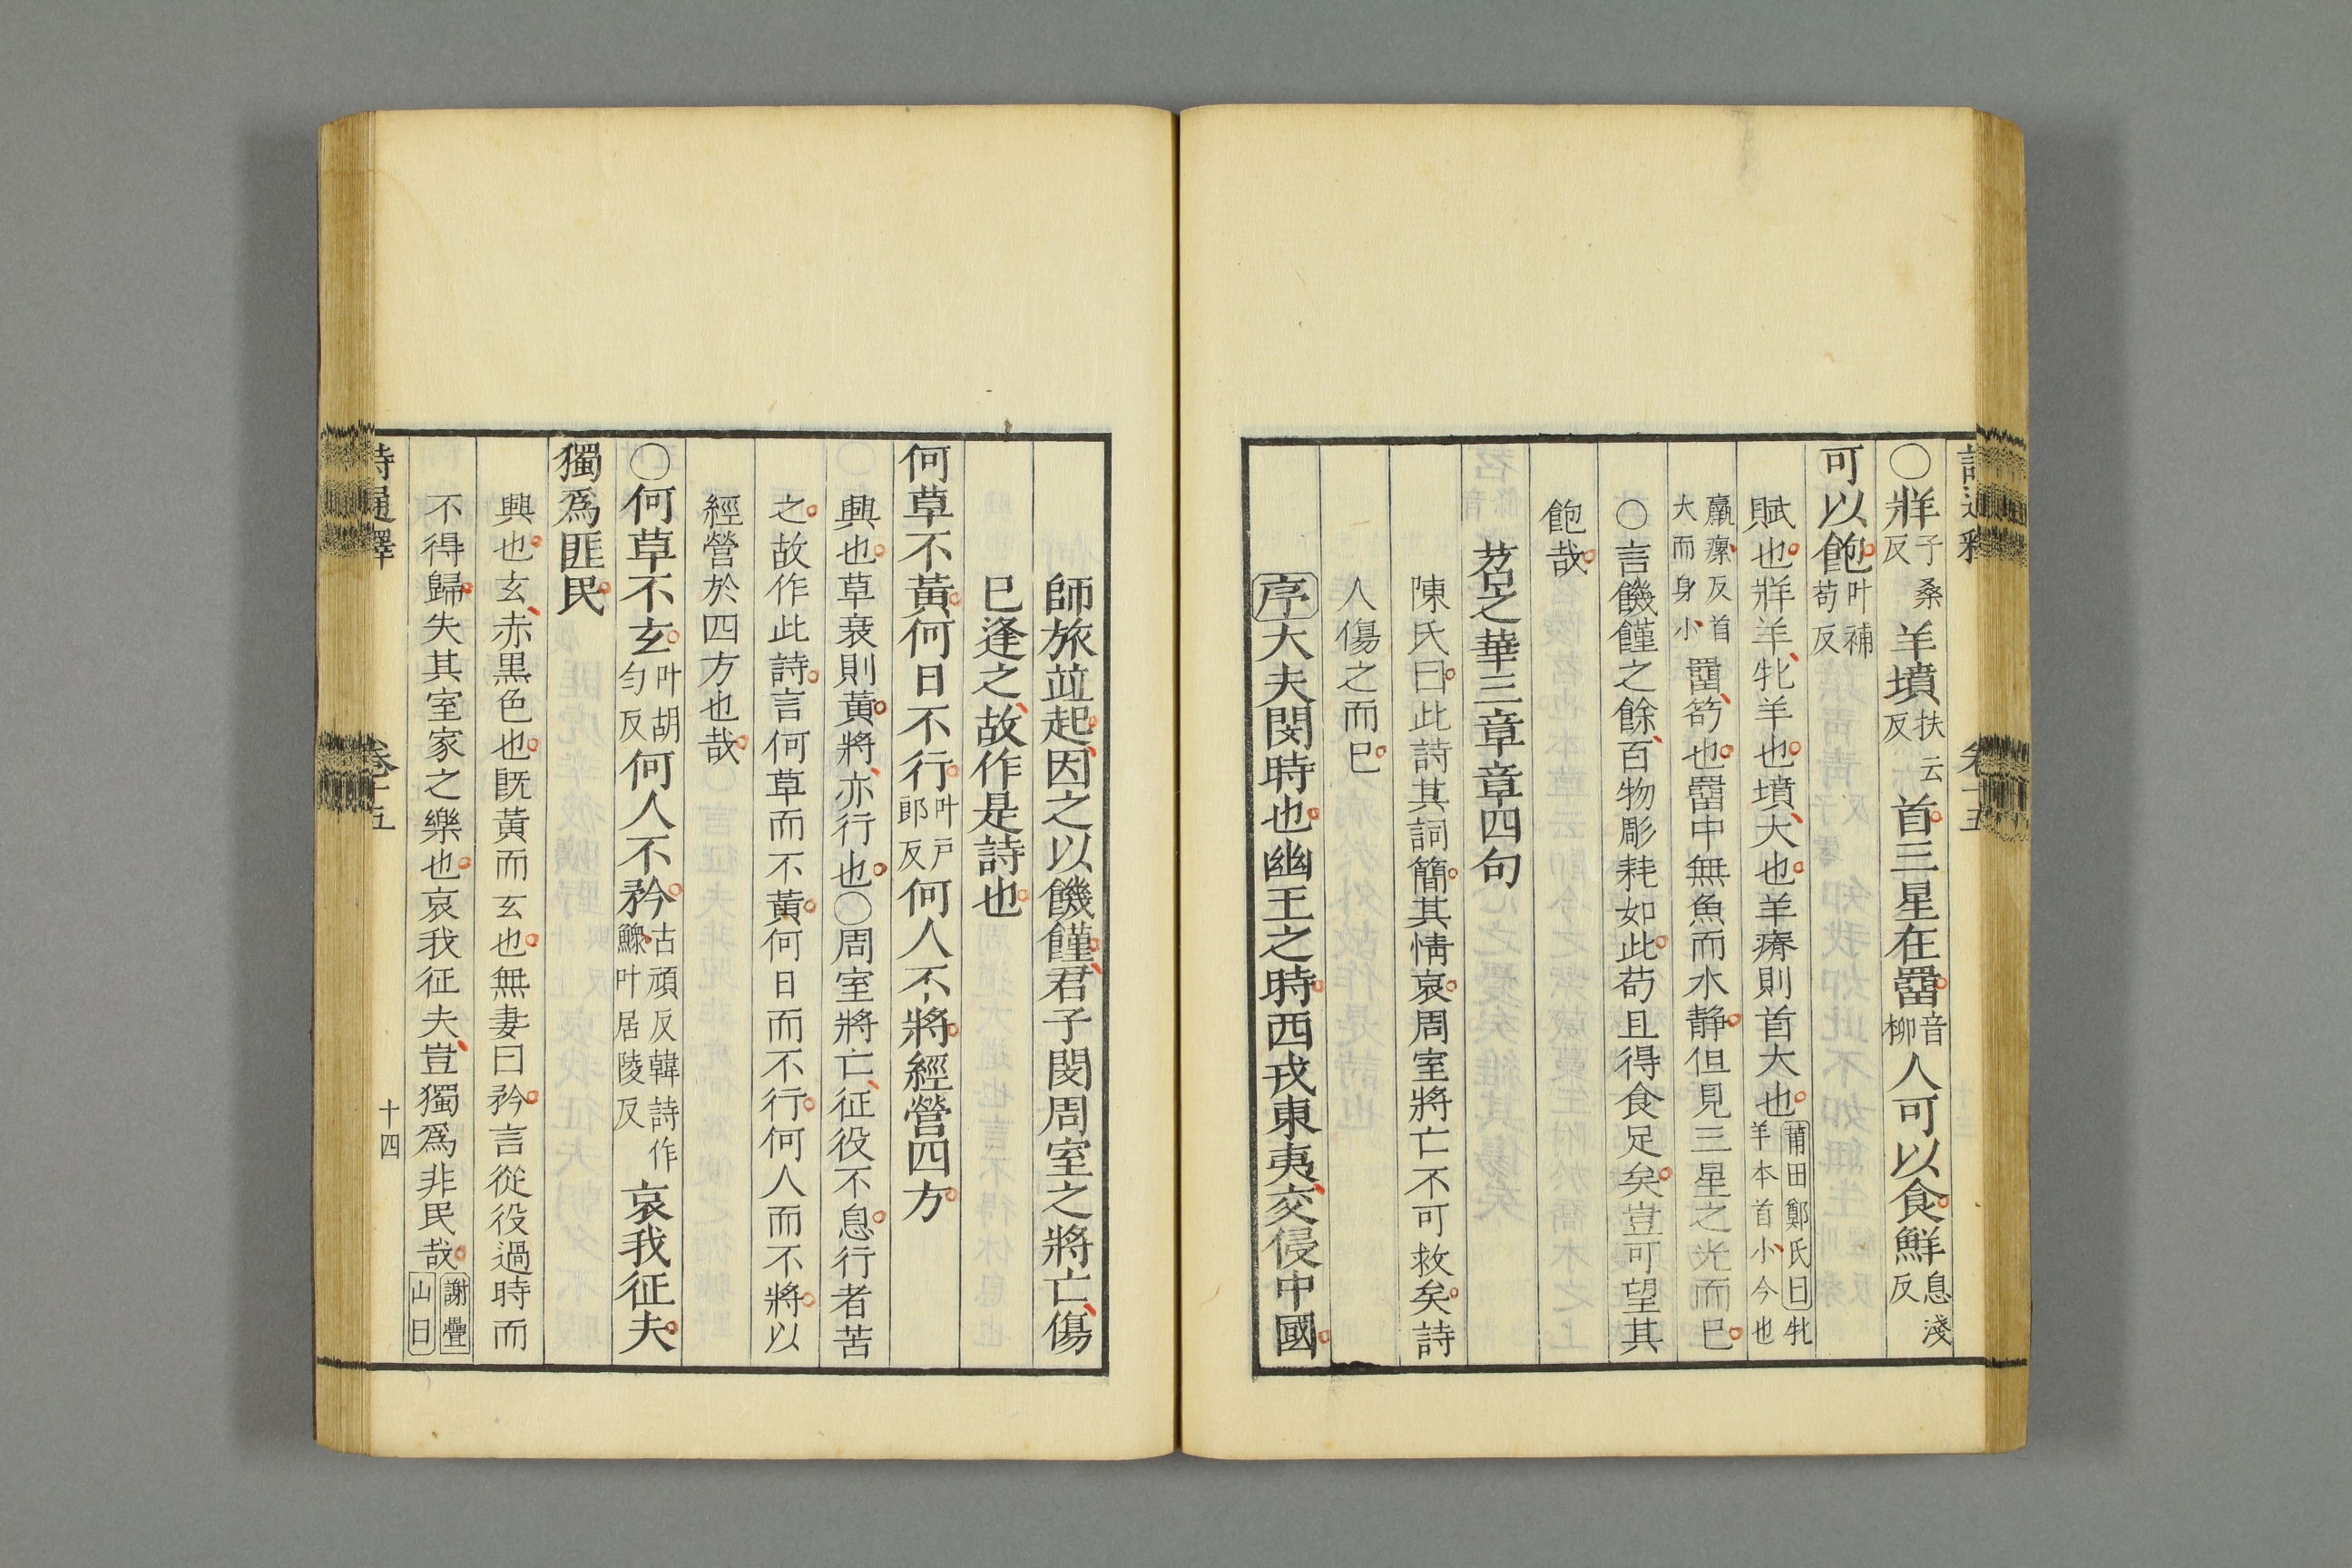 詩通釋 卷十五
○牂子桑反羊墳扶云反首三星在罶音柳人可以食鮮息淺反
可以飽叶補苟反
賦也牂羊牝羊也墳大也羊瘠則首大也莆田鄭氏曰牝羊本首小今也
羸瘰反首大而身小罶笱也罶中無魚而水静但見三星之光而已
○言饑饉之餘百物彫耗如此苟且得食足矣豈可望其
飽哉
苕之華三章章四句
陳氏曰此詩其詞簡其情哀周室將亡不可救矣詩
人傷之而已
序大夫閔時也幽王之時西戎東夷交侵中國
師旅並起因之以饑饉君子閔周室之將亡傷
已逢之故作是詩也
何草不黃何日不行叶戸郎反何人不將經營四方
興也草衰則黃將亦行也○周室將亡征役不息行者苦
之故作此詩言何草而不黃何日而不行何人而不將以
經營於四方也哉
○何草不玄叶胡勻反何人不矜古頑反韓詩作鰥叶居陵反哀我征夫
獨爲匪民
興也玄赤黒色也旣黃而玄也無妻曰矜言從役過時而
不得歸失其室家之樂也哀我征夫豈獨爲非民哉謝疊山曰
詩通釋 卷十五 十四